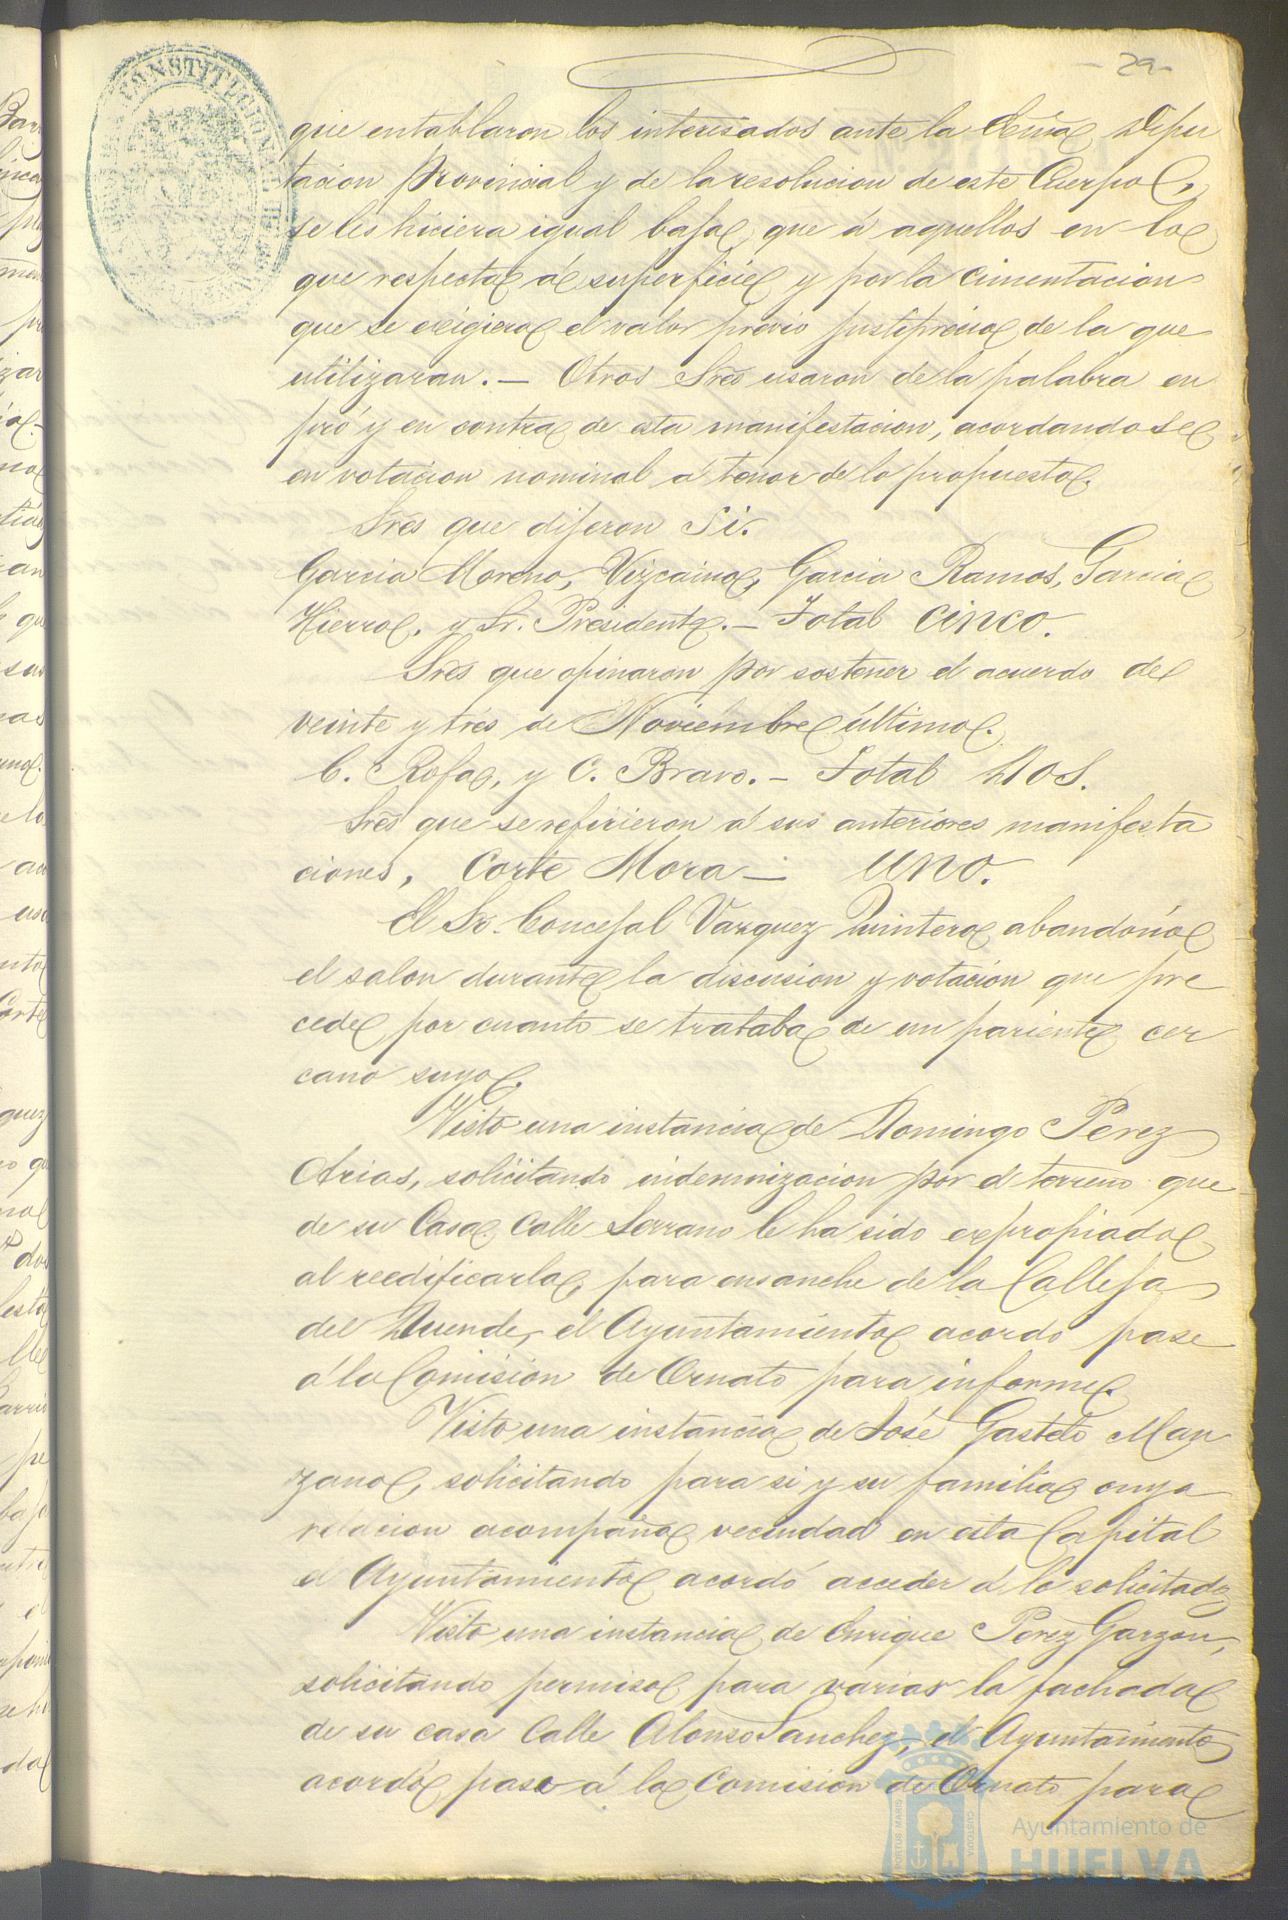 -29-
que entablaron los interesados ante la Exma Dipu
tacion provincial y de la resolucion de este Cuerpo,
se les hiciera igual baja que á aquellos en lo
que respecta á superficie y por la cimentacion
que se exigiera el valor previo justiprecio de la que
utilizaran.— Otros Sres usaron de la palabra en
pró y en contra de esta manifestacion, acordandose
en votacion nominal á tenor de lo propuesto.
Sres que dijeron Si.
Garcia Moreno, Vizcaino, Garcia Ramos, Garcia
Hierro, y Sr. Presidente.— Total CINCO.
Sres que opinaron por sostener el acuerdo de
veinte y tres de Noviembre último.
C. Rofa, y C. Bravo.— Total DOS.
Sres que se refirieron á sus anteriores manifesta
ciones, Corte Mora — UNO.
El Sr. Concejal Vazquez Quintero abandonó
el salon durante la discusion y votacion que pre
cede por cuanto se trataba de un pariente cer
cano suyo.
Visto una instancia de Domingo Perez
Arias, solicitando indemnizacion por el terreno que
de su Casa Calle Serrano le ha sido expropiado
al reedificarla, para ensanche de la Calleja
del Duende, el Ayuntamiento acordo pase
á la Comision de Ornato para informe.
Visto una instancia de José Gastelo Man
zano, solicitando para si y su familia cuya
relacion acompaña vecindad en esta Capital
el Ayuntamiento acordó acceder á lo solicitado
Visto una instancia de Enrique Perez Garzon,
solicitando permiso para variar la fachada
de su casa Calle Alonso Sanchez, el Ayuntamiento
acordó pase á la Comision de Ornato para
Ayuntamiento de
HUELVA
PORTUS MARIS
CUSTODIA